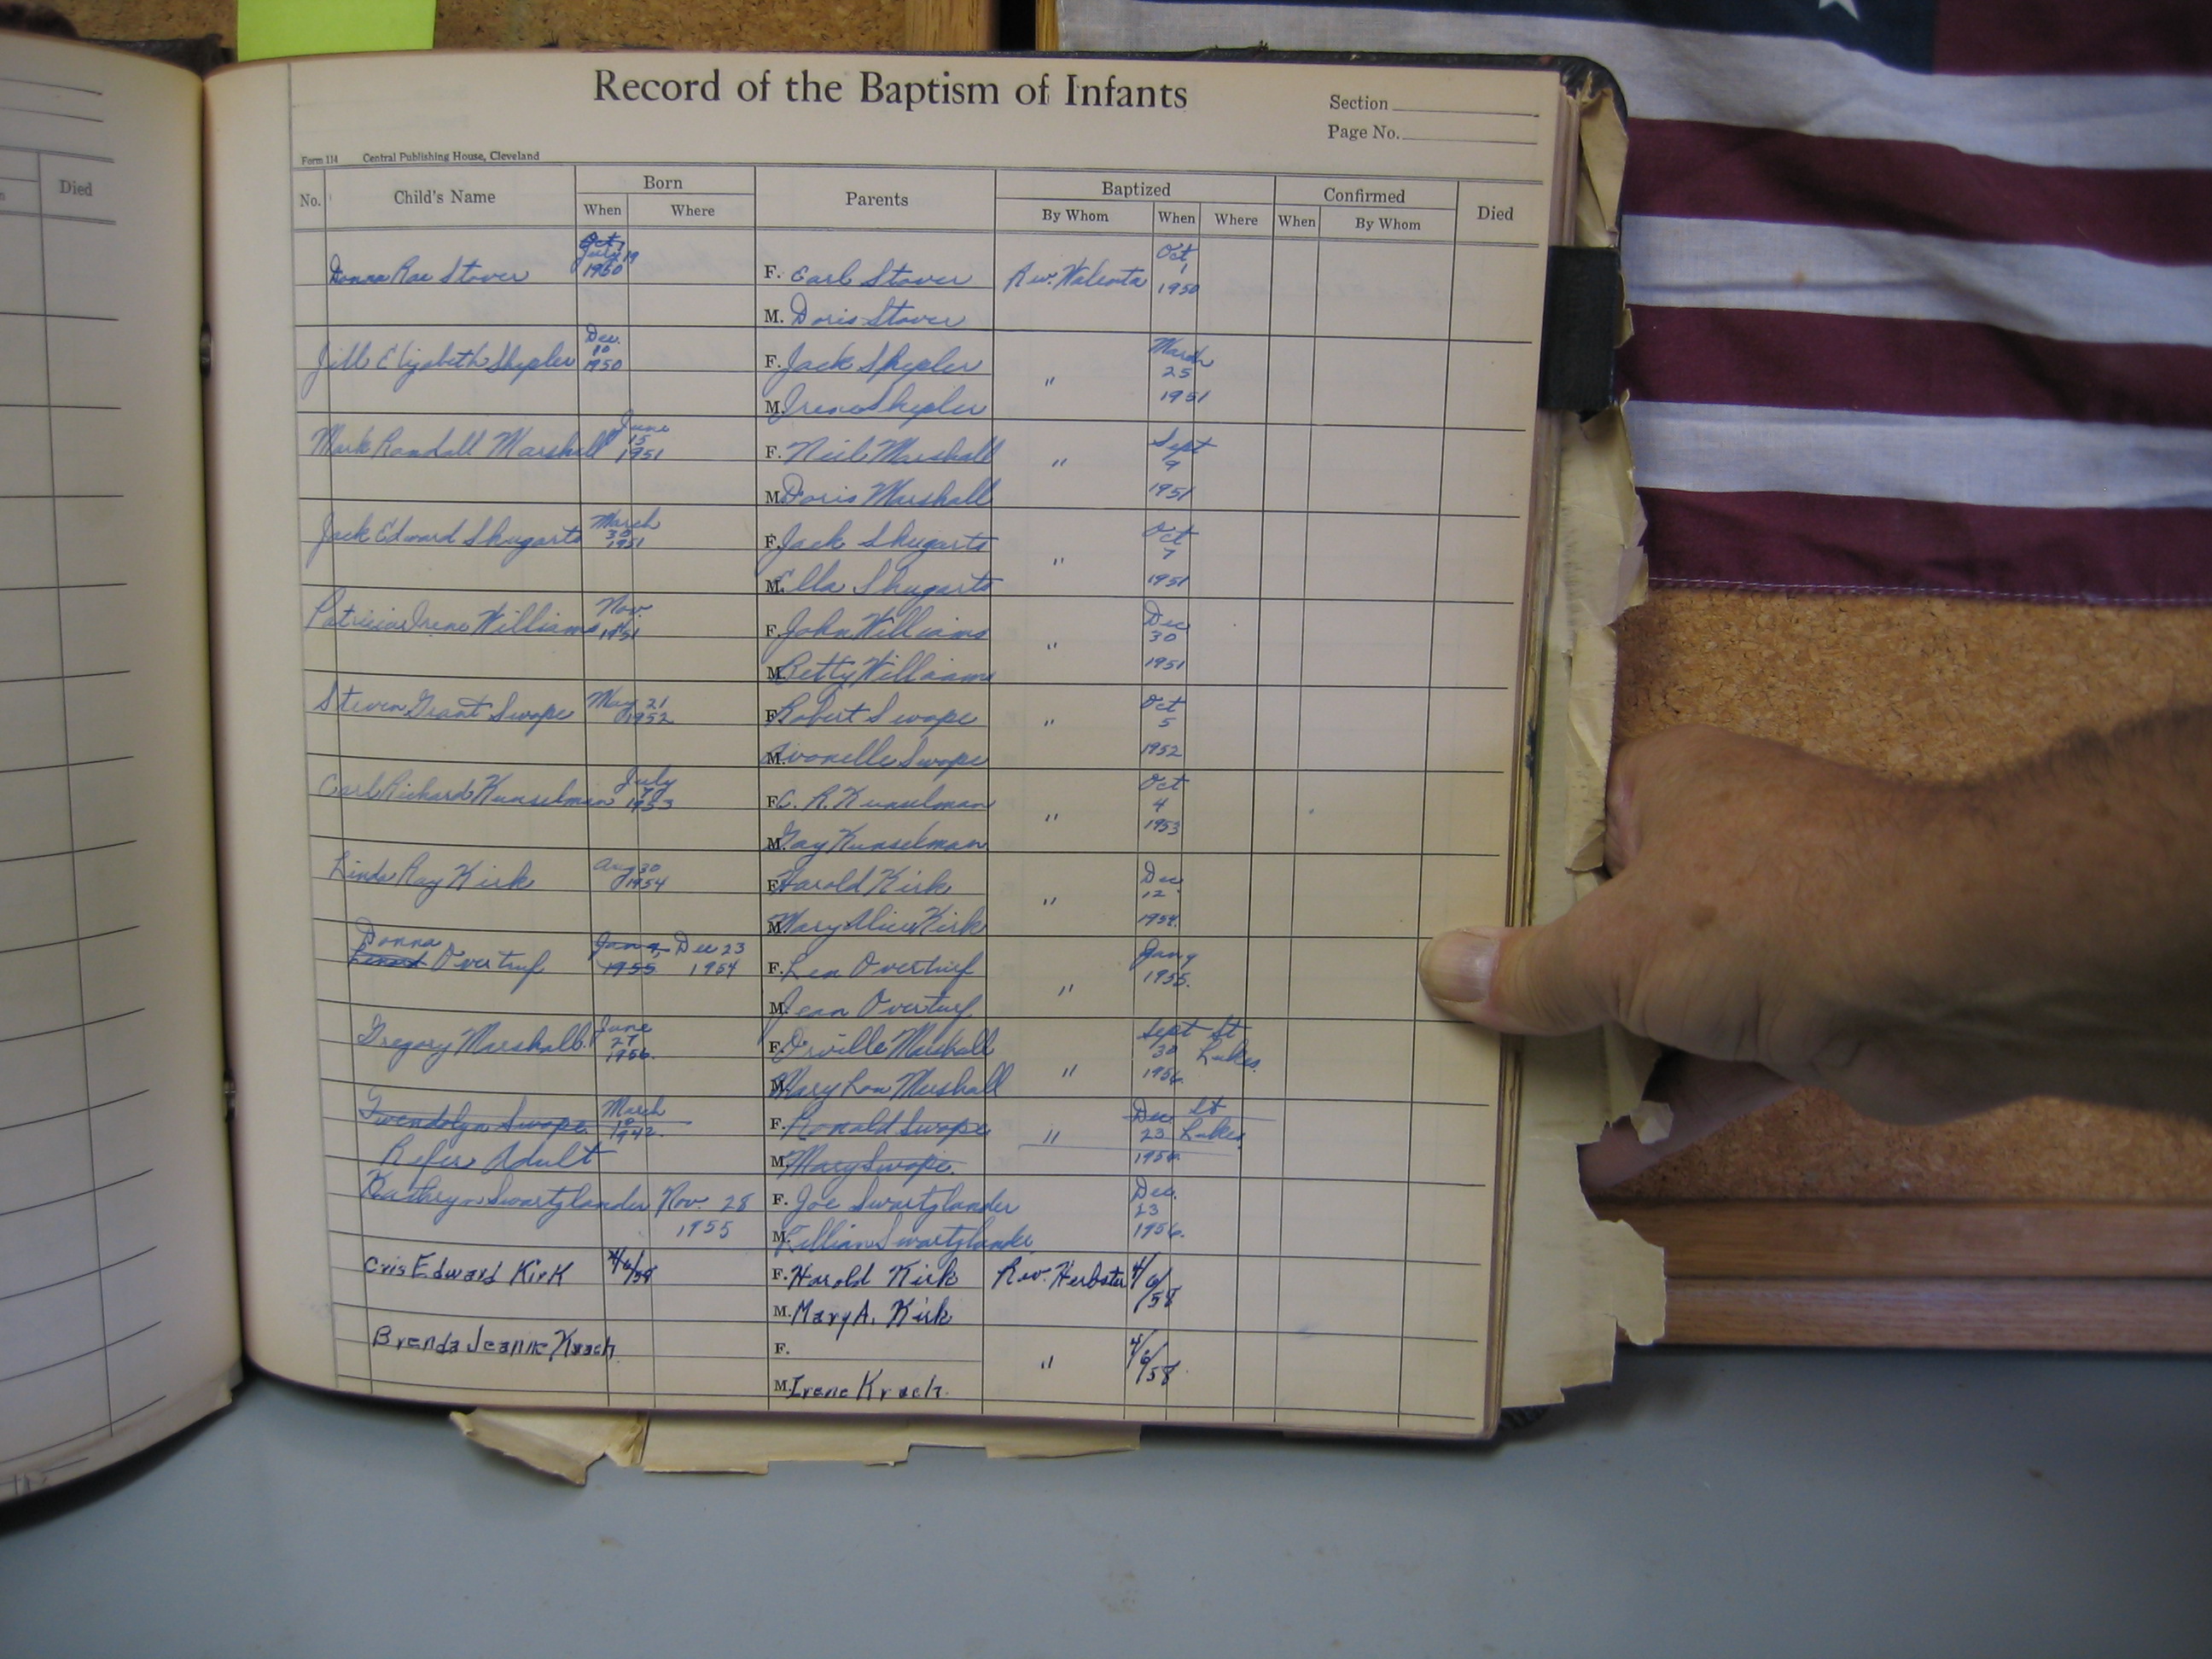 Record of the Baptism of Infants
Section
Page No.
Form 114 Central Publishing House, Cleveland
Died
No. Child's Name Born Parents Baptized Confirmed Died
When Where By Whom When Where When By Whom
Oct. 1
Donna Rae Stover July 19 1950 F. Earl Stover Rev. Oct 1 1950
M. Doris Stover
Jill Elizabeth Shepler Dec. 10 1950 F. Jack Shepler " March 25 1951
M. Irene Shepler
Mark Randall Marshall June 15 1951 F. Neil Marshall " Sept 9 1951
M. Doris Marshall
Jack Edward Shugarts March 30 1951 F. Jack Shugarts " Oct 7 1951
M. Ella Shugarts
Patricia Irene Williams Nov. 1951 F. John Williams " Dec 30 1951
M. Betty Williams
Steven Grant Swope May 21 1952 F. Robert Swope " Oct 5 1952
M. Avonelle Swope
Carl Richard Kunselman July 7 1953 F. C. R. Kunselman " Oct 4 1953
M. Gay Kunselman
Linda Ray Kirk Aug 30 1954 F. Harold Kirk " Dec 12 1954
M. Mary Alice Kirk
Donna
Overturf Jan 9, 1955 Dec 23 1954 F. Len Overturf " Jan 9 1955.
M. Jean Overturf
Gregory Marshall. June 27 1956. F. Orville Marshall " Sept 30 1956. St Lukes.
M. Mary Lou Marshall
Gwendolyn Swope March 10 1942. F. Ronald Swope " Dec 23 1956 St Lukes
Refer Adult M. Mary Swope.
Kathryn Swartzlander Nov. 28 1955 F. Joe Swartzlander Dec. 23 1956.
M. Lillian Swartzlander
Cris Edward Kirk 4/6/58 F. Harold Kirk Rev. Herbster 4/6/58
M. Mary A. Kirk
Brenda Jeanne Krach F. " 4/6/58
M. Irene Krach